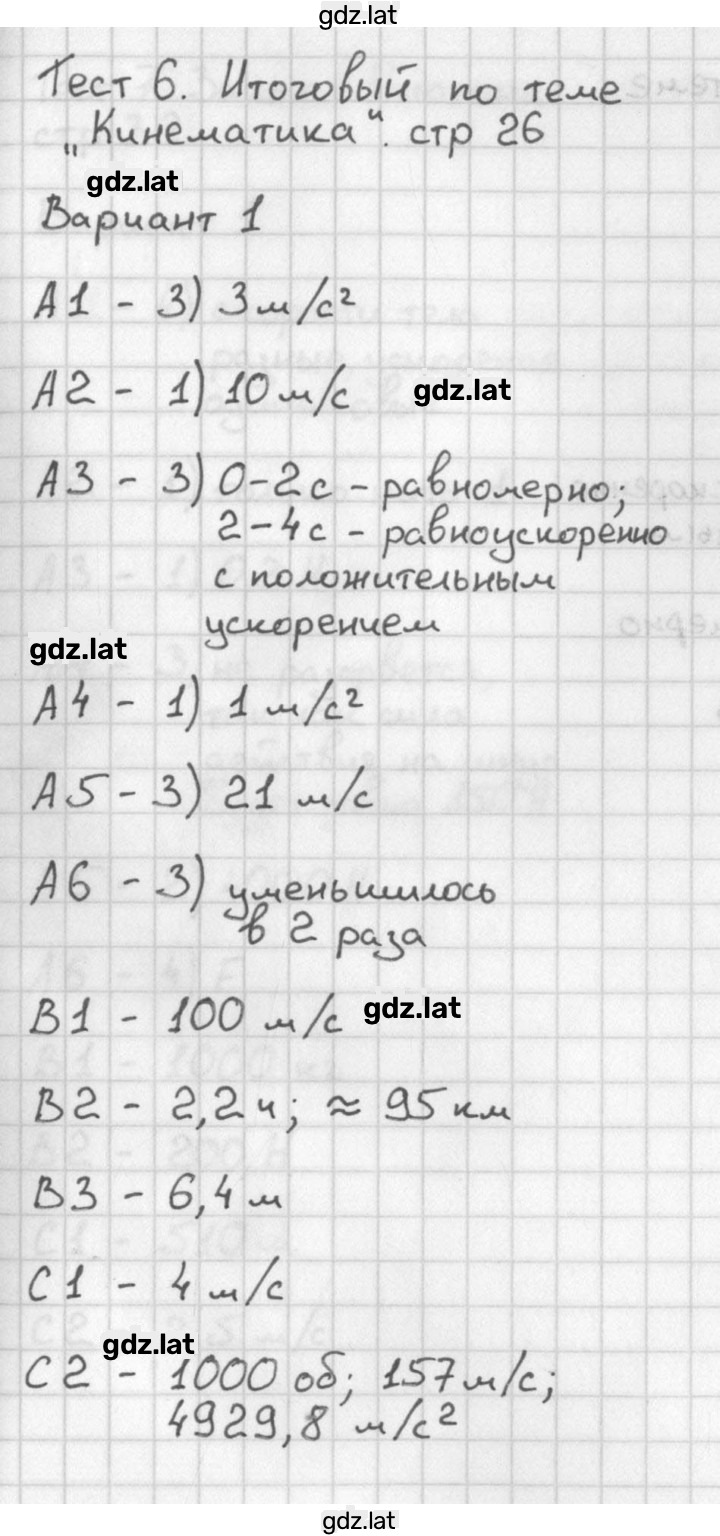 gdz.lat
Тест 6. Итоговый по теме
„Кинематика“. стр 26
gdz.lat
Вариант 1
А1 - 3) 3 м/с²
А2 - 1) 10 м/с gdz.lat
А3 - 3) 0-2 с - равномерно;
2-4 с - равноускоренно
с положительным
ускорением
gdz.lat
А4 - 1) 1 м/с²
А5 - 3) 21 м/с
А6 - 3) уменьшилось
в 2 раза
В1 - 100 м/с gdz.lat
В2 - 2,2 ч; ≈ 95 км
В3 - 6,4 м
С1 - 4 м/с
gdz.lat
С2 - 1000 об; 157 м/с;
4929,8 м/с²
gdz.lat